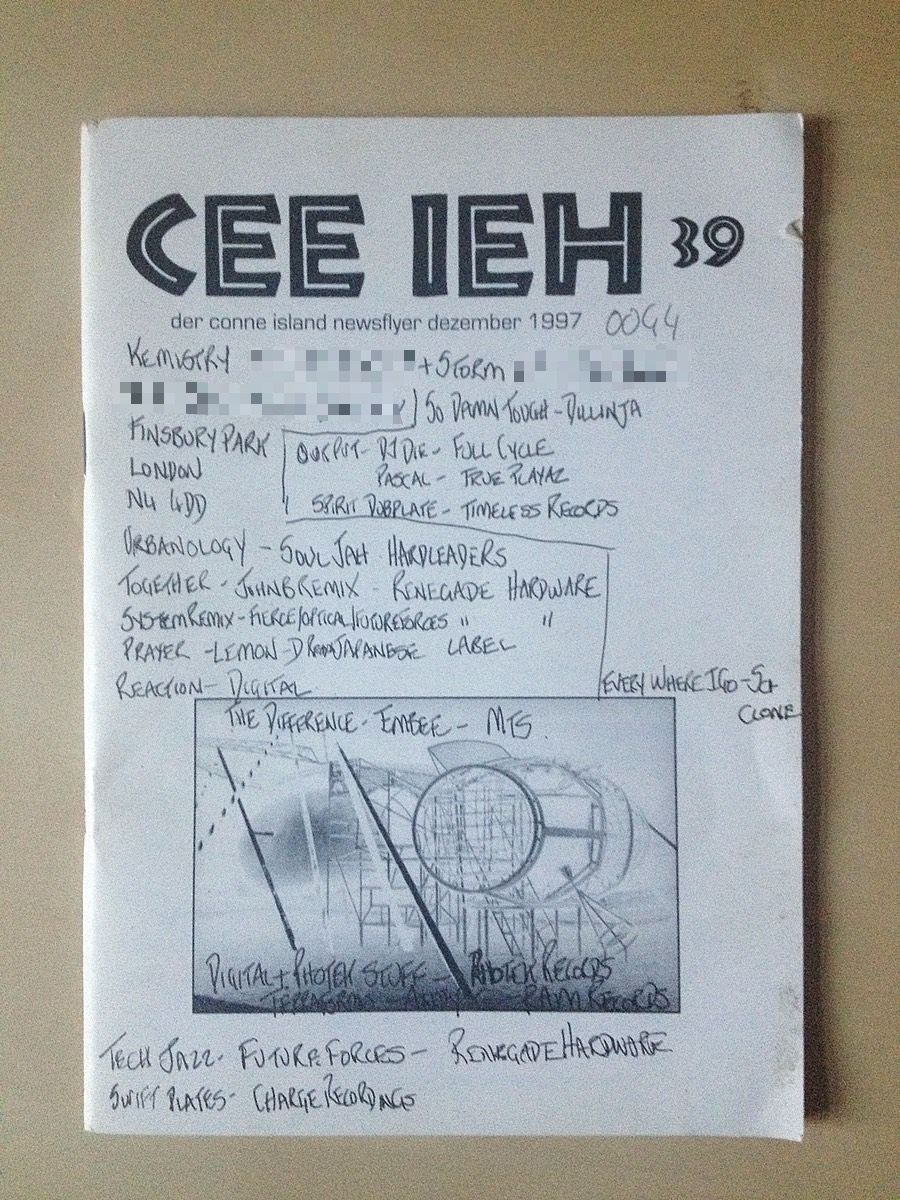 CEE IEH 39
der conne island newsflyer dezember 1997 0044
KEMISTRY + STORM
SO DAMN TOUGH - DILLINJA
FINSBURY PARK
LONDON
N4
OUTPUT - DJ DIE - FULL CYCLE
PASCAL - TRUE PLAYAZ
SPIRIT DUBPLATE - TIMELESS RECORDS
URBANOLOGY - SOUL JAH HARDLEADERS
TOGETHER - JOHN B REMIX - RENEGADE HARDWARE
SYSTEM REMIX - FIERCE/OPTICAL/FUTUREFORCES " "
PRAYER - LEMON-D FROM JAPANESE LABEL
REACTION - DIGITAL
EVERYWHERE I GO - SCI
CLONE
THE DIFFERENCE - EMBEE - MTS.
DIGITAL + PHOTEK STUFF - PHOTEK RECORDS
RAM RECORDS
TECH JAZZ - FUTURE FORCES - RENEGADE HARDWARE
SWIFT PLATES - CHARGE RECORDINGS